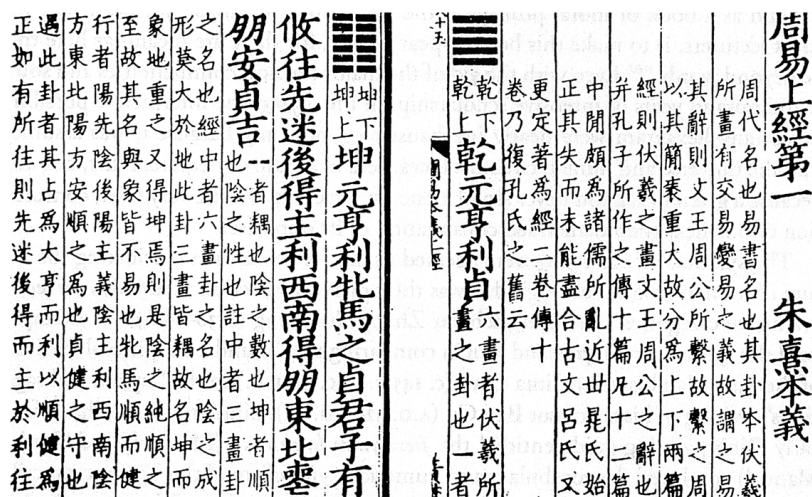 周易上經第一 朱熹本義
周代名也易書名也其卦本伏羲
所畫有交易變易之義故謂之易
其辭則文王周公所繫故繫之周
以其簡袠重大故分爲上下兩篇
經則伏羲之畫文王周公之辭也
并孔子所作之傳十篇凡十二篇
中閒頗爲諸儒所亂近世晁氏始
正其失而未能盡合古文呂氏又
更定著爲經二卷傳十
卷乃復孔氏之舊云
乾下
乾上
乾元亨利貞
六畫者伏羲所
畫之卦也
坤下
坤上
坤元亨利牝馬之貞君子有
攸往先迷後得主利西南得朋東北喪
朋安貞吉
⚋者耦也陰之數也坤者順
也陰之性也註中者三畫卦
之名也經中者六畫卦之名也陰之成
形莫大於地此卦三畫皆耦故名坤而
象地重之又得坤焉則是陰之純順之
至故其名與象皆不易也牝馬順而健
行者陽先陰後陽主義陰主利西南陰
方東北陽方安順之爲也貞健之守也
遇此卦者其占爲大亨而利以順健爲
正如有所往則先迷後得而主於利往